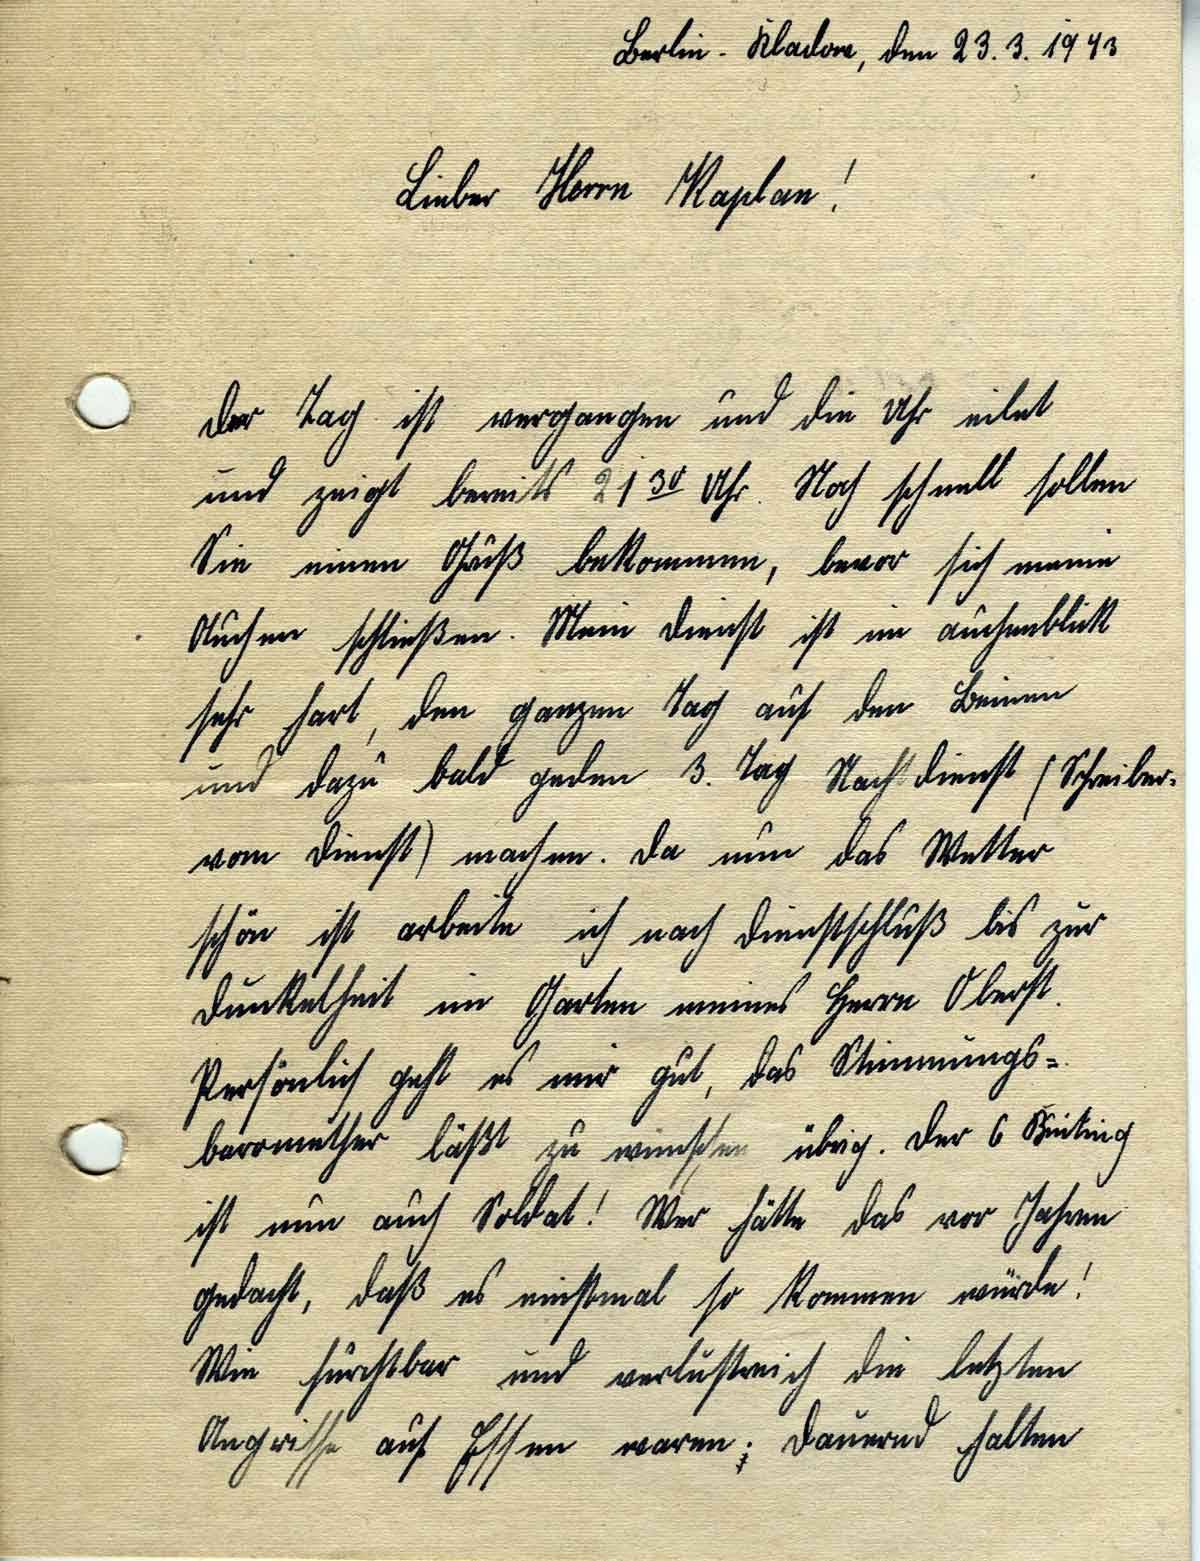 Berlin - Kladow, den 23.3.1943
Lieber Herrn Kaplan!
Der Tag ist vergangen und die Uhr eilet
und zeigt bereits 21 30 Uhr. Noch schnell sollen
Sie einen Gruß bekommen, bevor sich meine
Auchen schließen. Mein Dienst ist im auchenblick
sehr hart, den ganzen Tag auf den Beinen
und dazu bald geden 3. Tag Nachtdienst (Schreiber-
vom Dienst) machen. Da nun das Wetter
schön ist arbeite ich nach Dienstschluß bis zur
Dunkelheit im Garten meines Herrn Oberst.
Persönlich geht es mir gut, das Stimmungs=
baromether läßt zu wünschen übrig. Der G
ist nun auch Soldat! Wer hätte das vor Jahren
gedacht, daß es einstmal so kommen würde!
Wie furchtbar und verlustreich die letzten
Angriffe auf Essen waren; Dauernd halten